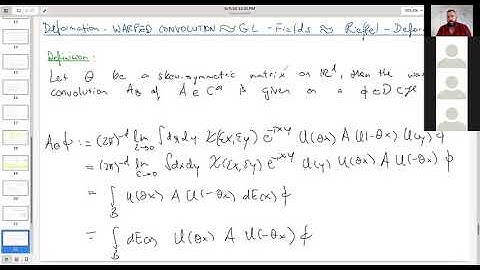 Deformation - WARPED CONVOLUTION ≈ GL - Fields ≈ Rieffel - Defor
Definition:
Let Θ be a skew-symmetric matrix on ℝᵈ, then the wa
convolution A_Θ of A ∈ C^∞ is given on a ϕ ∈ D
A_Θ ϕ := (2π)^{-d} lim_{ε→0} ∫ dx dy χ(εx, εy) e^{-ixy} U(Θx) A U(-Θx) U(y) ϕ
= (2π)^{-d} lim_{ε→0} ∫ dx dy χ(εx, εy) e^{-ixy} U(y) U(Θx) A U(-Θx) ϕ
= ∫ U(Θx) A U(-Θx) dE(x) ϕ
= ∫ dE(x) U(Θx) A U(-Θx) ϕ